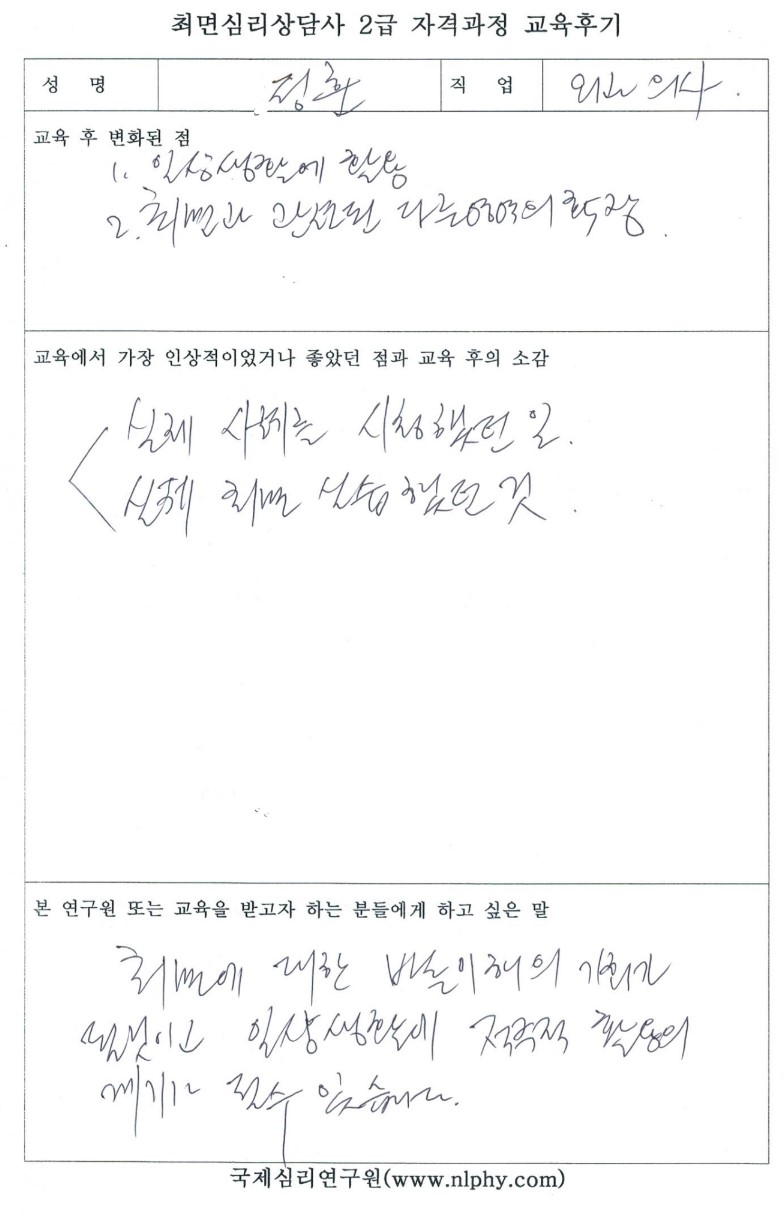 최면심리상담사 2급 자격과정 교육후기
성 명 정환 직 업 외과 의사.
교육 후 변화된 점
1. 일상생활에 활용
2. 최면과 관련된 다른 영역의 확장.
교육에서 가장 인상적이었거나 좋았던 점과 교육 후의 소감
실제 사례를 시청했던 일.
실제 최면 실습했던 것.
본 연구원 또는 교육을 받고자 하는 분들에게 하고 싶은 말
최면에 대한 바른이해의 기회가
될것이고 일상생활에 적극적 활용의
계기가 될수 있습니다.
국제심리연구원(www.nlphy.com)